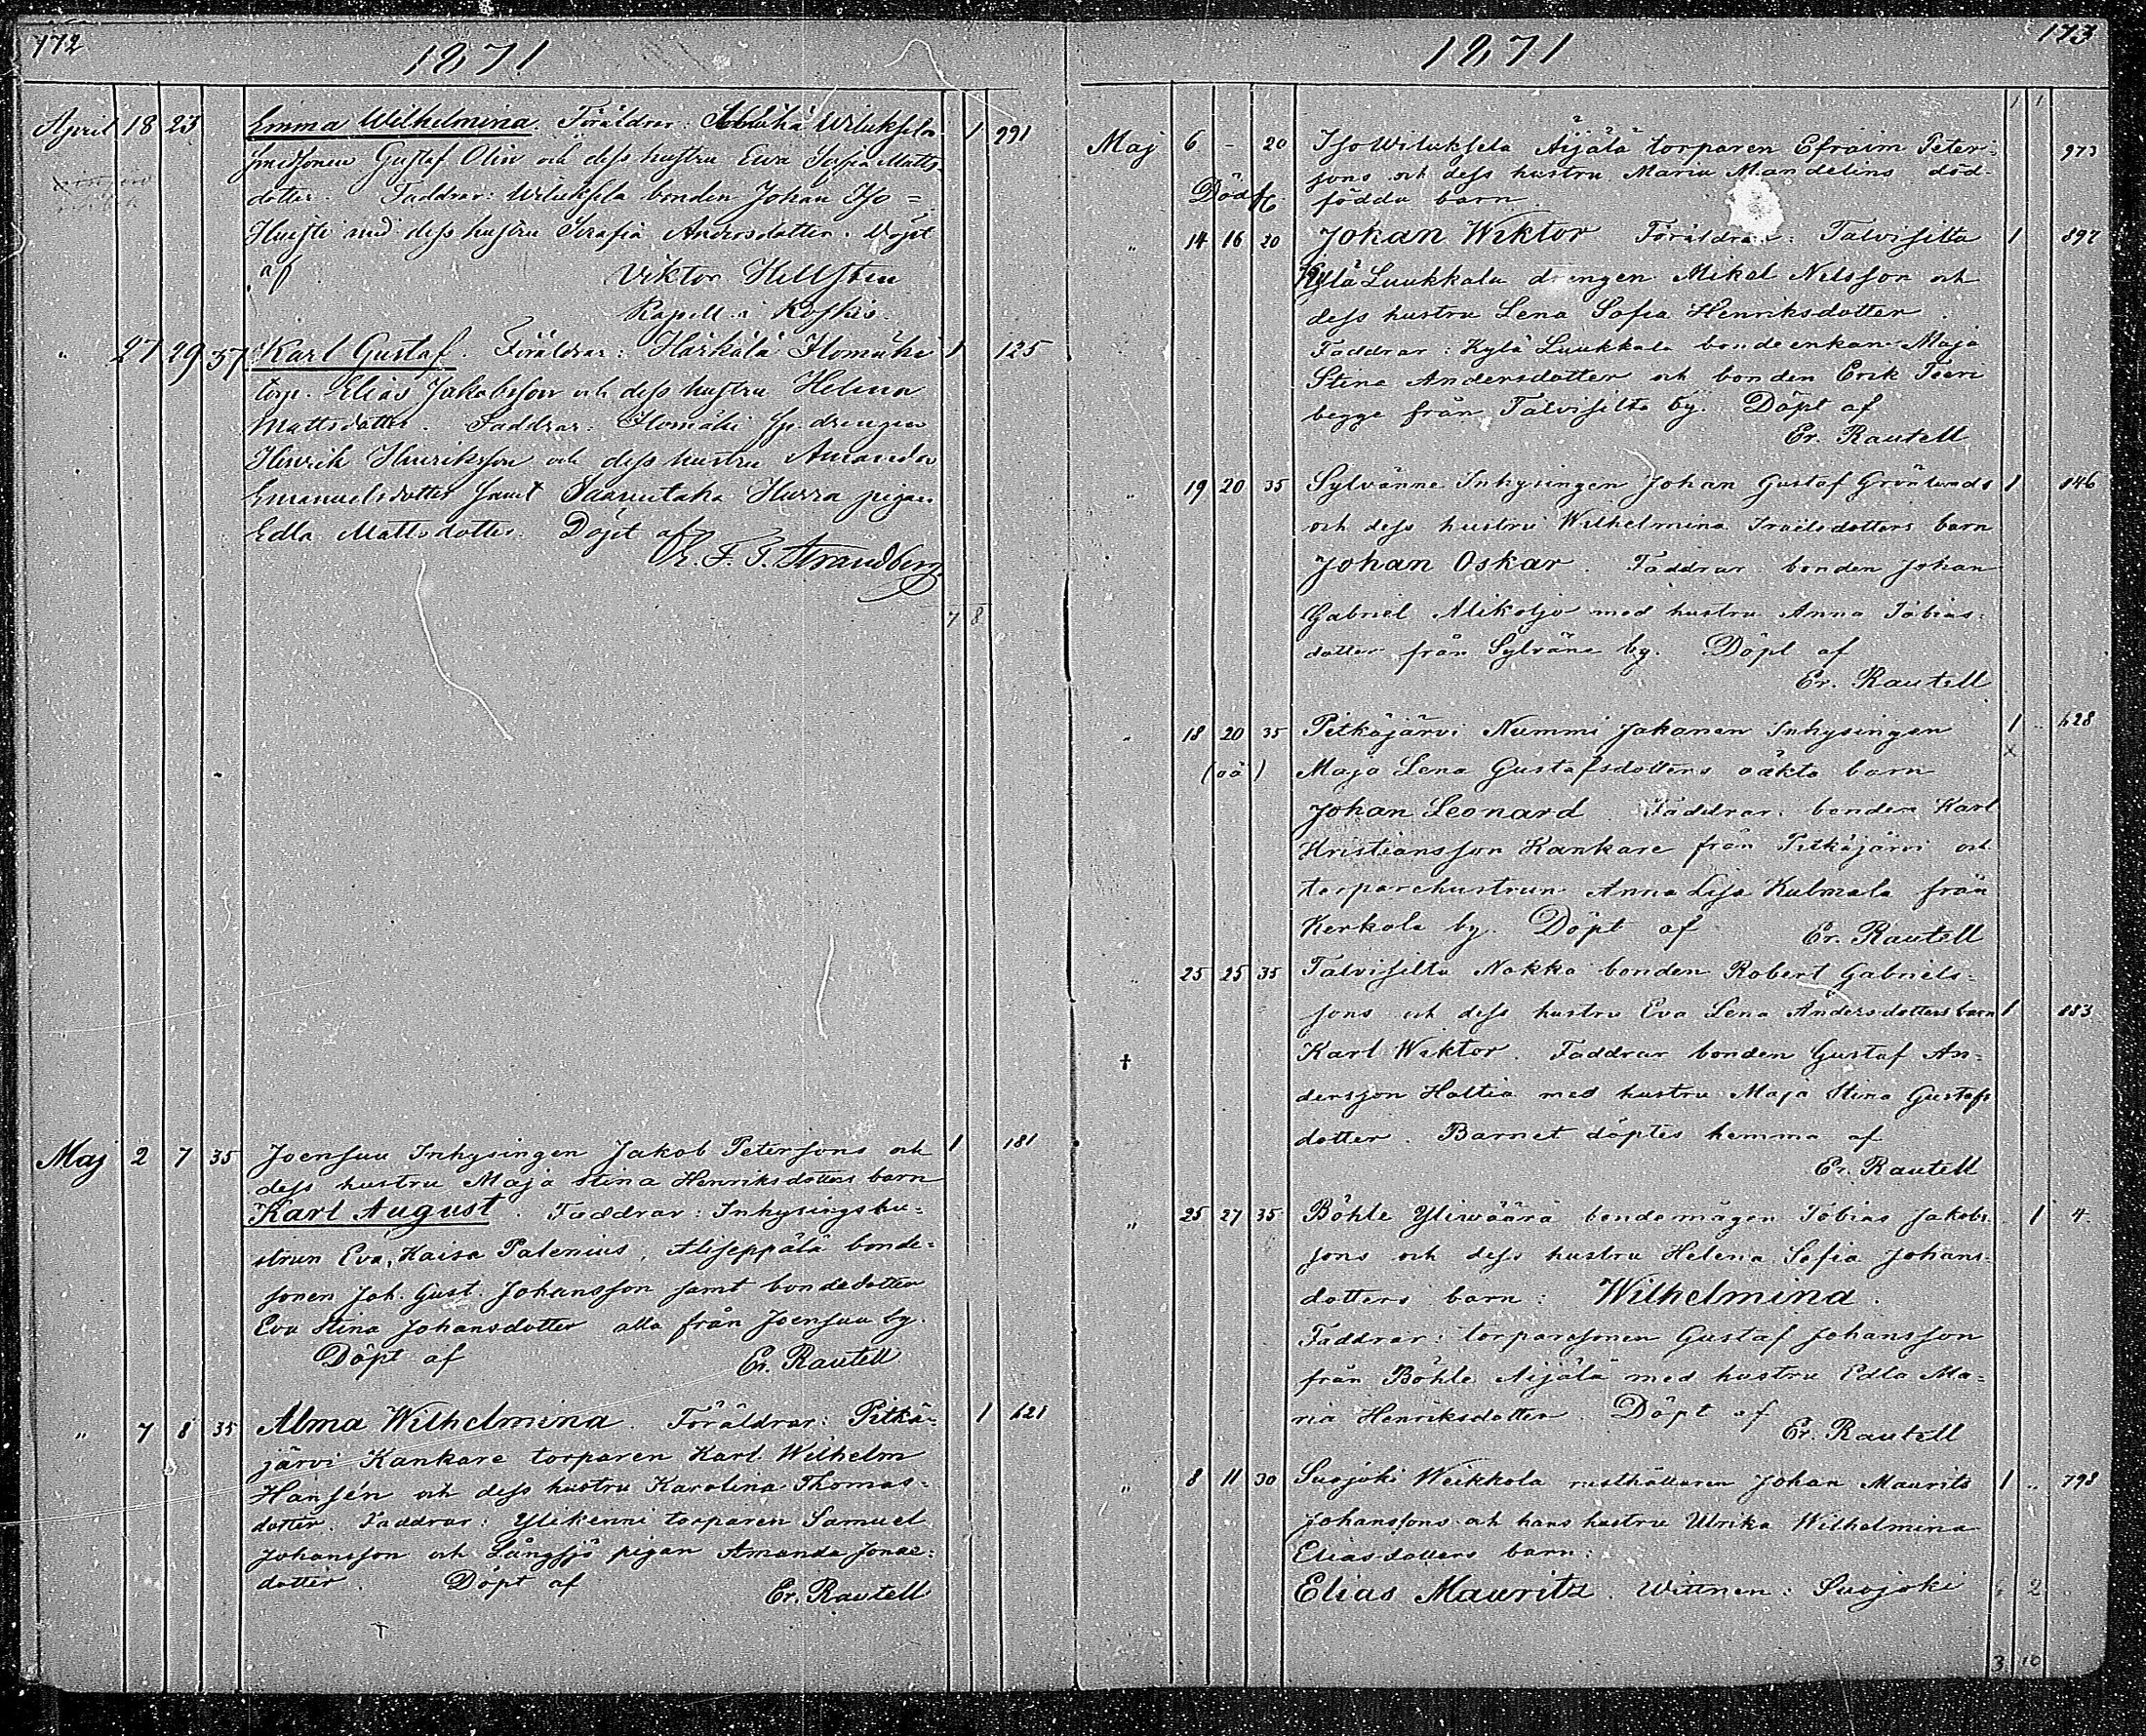 172
1871
April 18 23 Emma Wilhelmina. Föräldrar: Wiluksela 1 991
smedsonen Gustaf Olin och dess hustru Eva Sofia Matts-
dotter. Faddrar: Wiluksela bonden Johan Iso=
med dess hustru Serafia Andersdotter. Döpt
af Viktor Hellsten
Kapell. i Koskis.
" 27 29 37 Karl Gustaf. Föräldrar: Härkälä Ilomäki 1 125
torp. Elias Jakobsson och dess hustru Helena
Mattsdotter. Faddrar: Ilomäki drengen
Henrik Henriksson och dess hustru Amanda
Emanuelsdotter samt Hurra pigan
Edla Mattsdotter. Döpt af
F. T. Strandberg.
7 8
Maj 2 7 35 Joensuu Inhysingen Jakob Petersons och 1 181
dess hustru Maja Stina Henriksdotters barn
Karl August. Faddrar: Inhysingshu-
strun Eva Kaisa Palenius, Aliseppälä bonde-
sonen Joh. Gust. Johansson samt bondedotter
Eva Stina Johansdotter alla från Joensuu by.
Döpt af Er. Rautell
" 7 8 35 Alma Wilhelmina. Föräldrar: Pitkä- 1 621
järvi Kankare torparen Karl Wilhelm
Hansén och dess hustru Karolina Thomas-
dotter. Faddrar: Ylikenni torparen Samuel
Johansson och Långsjö pigan Amanda Jonae-
dotter. Döpt af Er. Rautell
173
1871
1 1
Maj 6 - 20 Iso Wiluksela Äijälä torparen Efraim Peter- 973
sons och dess hustru Maria Mandelins död-
Dödf. födda barn.
" 14 16 20 Johan Wiktor Föräldrar: Talvisilta 1 892
Kylä Luukkala drengen Mikal Nilsson och
dess hustru Lena Sofia Henriksdotter.
Faddrar: Kylä Luukkala bondeenkan Maja
Stina Andersdotter och bonden Erik Teeri
begge från Talvisilta by. Döpt af
Er. Rautell
" 19 20 35 Sylvänne Inhysingen Johan Gustaf Grönlunds 1 846
och dess hustru Wilhelmina Israelsdotters barn
Johan Oskar. Faddrar bonden Johan
Gabriel Alikoljo med hustru Anna Tobias-
dotter från Sylväne by. Döpt af
Er. Rautell
" 18 20 35 Pitkäjärvi Nummi Jakanan Inhysingen 1 .. 628
(oä) Maja Lena Gustafsdotters oäkta barn x
Johan Leonard. Faddrar: bonden Karl
Kristiansson Kankare från Pitkäjärvi och
torparehustrun Anna Lisa Kulmala från
Kerkola by. Döpt af Er. Rautell
" 25 25 35 Talvisilta Nokka bonden Robert Gabriels-
sons och dess hustru Eva Lena Andersdotters barn 1 883
† Karl Wiktor. Faddrar bonden Gustaf An-
dersson Haltia med hustru Maja Stina Gustafs
dotter. Barnet döptes hemma af
Er. Rautell
" 25 27 35 Böhle Yliwäärä bondemågen Tobias Jakobs- 1 4
sons och dess hustru Helena Sofia Johans-
dotters barn: Wilhelmina.
Faddrar: torparesonen Gustaf Johansson
från Böhle Äijälä med hustru Edla Ma-
ria Henriksdotter. Döpt af
Er. Rautell
" 8 11 30 Suojoki Weikkola rusthållaren Johan Maurits 1 .. 798
Johanssons och hans hustru Ulrika Wilhelmina
Eliasdotters barn:
Elias Mauritz. Wittnen: Suojoki 6 2
3 10